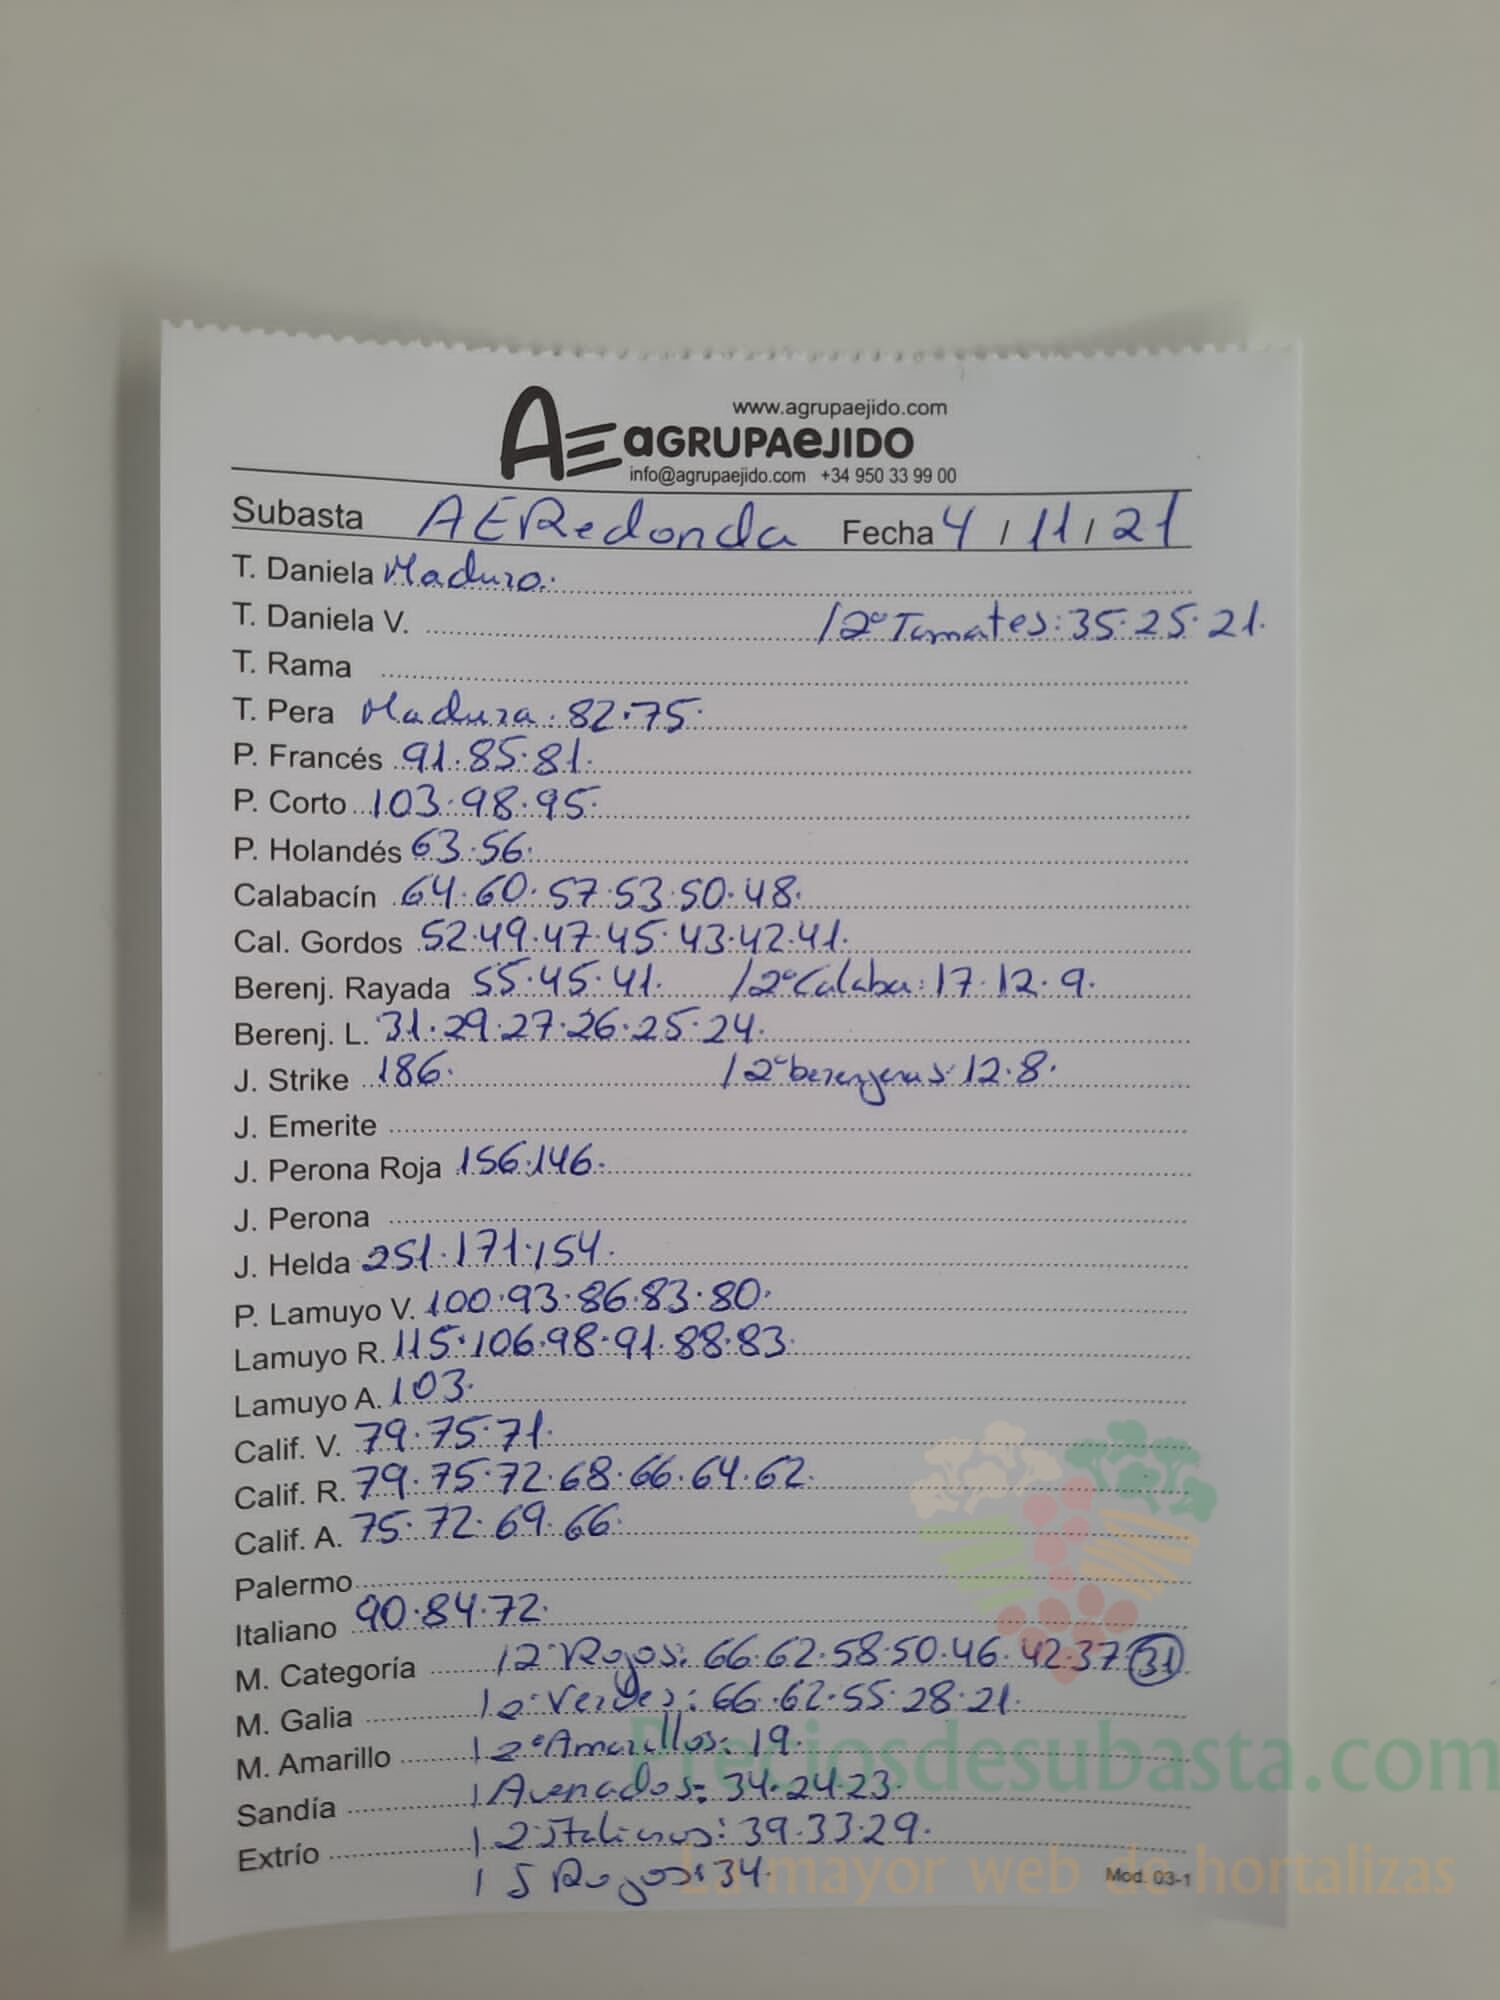 www.agrupaejido.com
AE aGRUPAeJIDO
info@agrupaejido.com +34 950 33 99 00
Subasta AERedonda Fecha 4 / 11 / 21
T. Daniela Maduro.
T. Daniela V. /2º Tomates: 35.25.21.
T. Rama
T. Pera Madura. 82.75.
P. Francés 91.85.81.
P. Corto 103.98.95.
P. Holandés 63.56.
Calabacín 64.60.57.53.50.48.
Cal. Gordos 52.49.47.45.43.42.41.
Berenj. Rayada 55.45.41. /2º Calaba: 17.12.9.
Berenj. L. 31.29.27.26.25.24.
J. Strike 186. /2º berenjenas: 12.8.
J. Emerite
J. Perona Roja 156.146.
J. Perona
J. Helda 251.171.154.
P. Lamuyo V. 100.93.86.83.80.
Lamuyo R. 115.106.98.91.88.83.
Lamuyo A. 103.
Calif. V. 79.75.71.
Calif. R. 79.75.72.68.66.64.62.
Calif. A. 75.72.69.66.
Palermo
Italiano 90.84.72.
M. Categoría /2º Rojos: 66.62.58.50.46.42.37 31
M. Galia /2º Verdes: 66.62.55.28.21.
M. Amarillo /2º Amarillos: 19.
Sandía /Avenados: 34.24.23.
Extrío /2º Italianos: 39.33.29.
/5 Rojos: 34.
Mod. 03-1
Preciosdesubasta.com
La mayor web de hortalizas